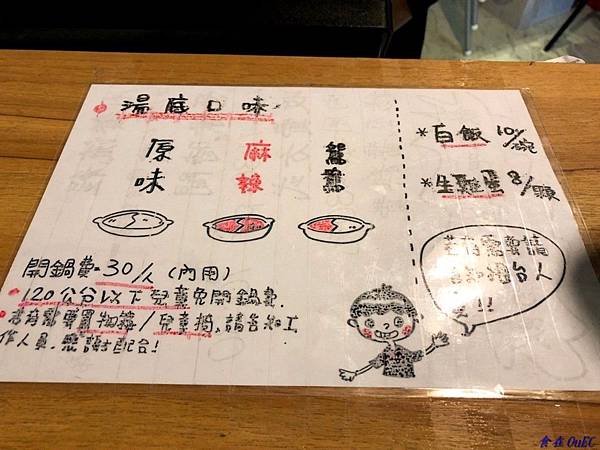 湯底口味
原味
麻辣
鴛鴦
開鍋費-30/人(內用)
120公分以下兒童免開鍋費.
若有需要置物籃/兒童椅,請告知工
作人員.感謝配合!
*白飯10/碗
*生雞蛋8/顆
若有需要請
告知櫃台人
!!
食在OuEC